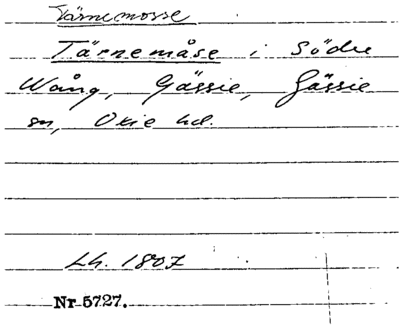 Tärnemosse
Tärnemåse i Södre
Wång, Gässie, Gässie
sn, Oxie hd.
Lh. 1807
Nr 5727.